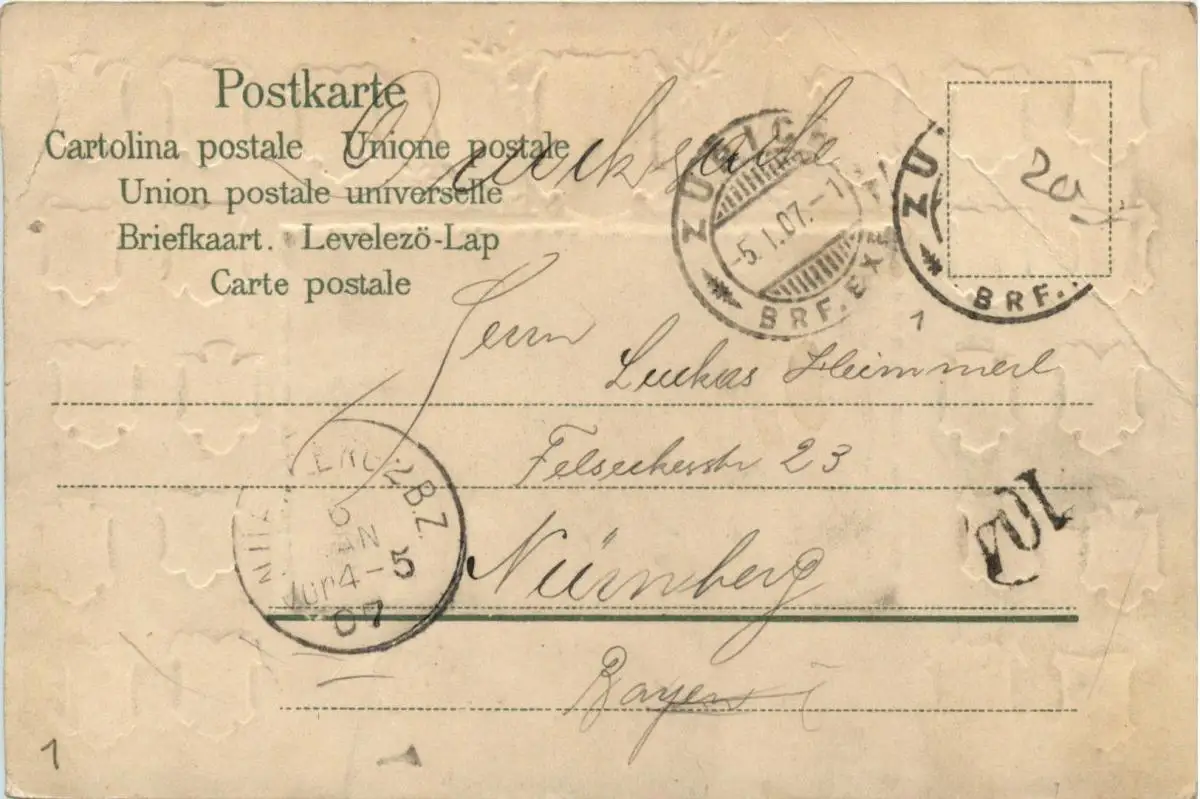 Postkarte
Cartolina postale Unione postale
Union postale universelle
Briefkaart. Levelezö-Lap
Carte postale
Drucksache
ZÜRICH
-5.I.07.-1
BRF. EXP.
ZÜ
BRF.
20
1
Herrn
Luckas Heimmerl
Felseckerstr 23
Nürnberg
Bayern
2.B.Z.
6
JAN
Vor 4-5
07
101
1